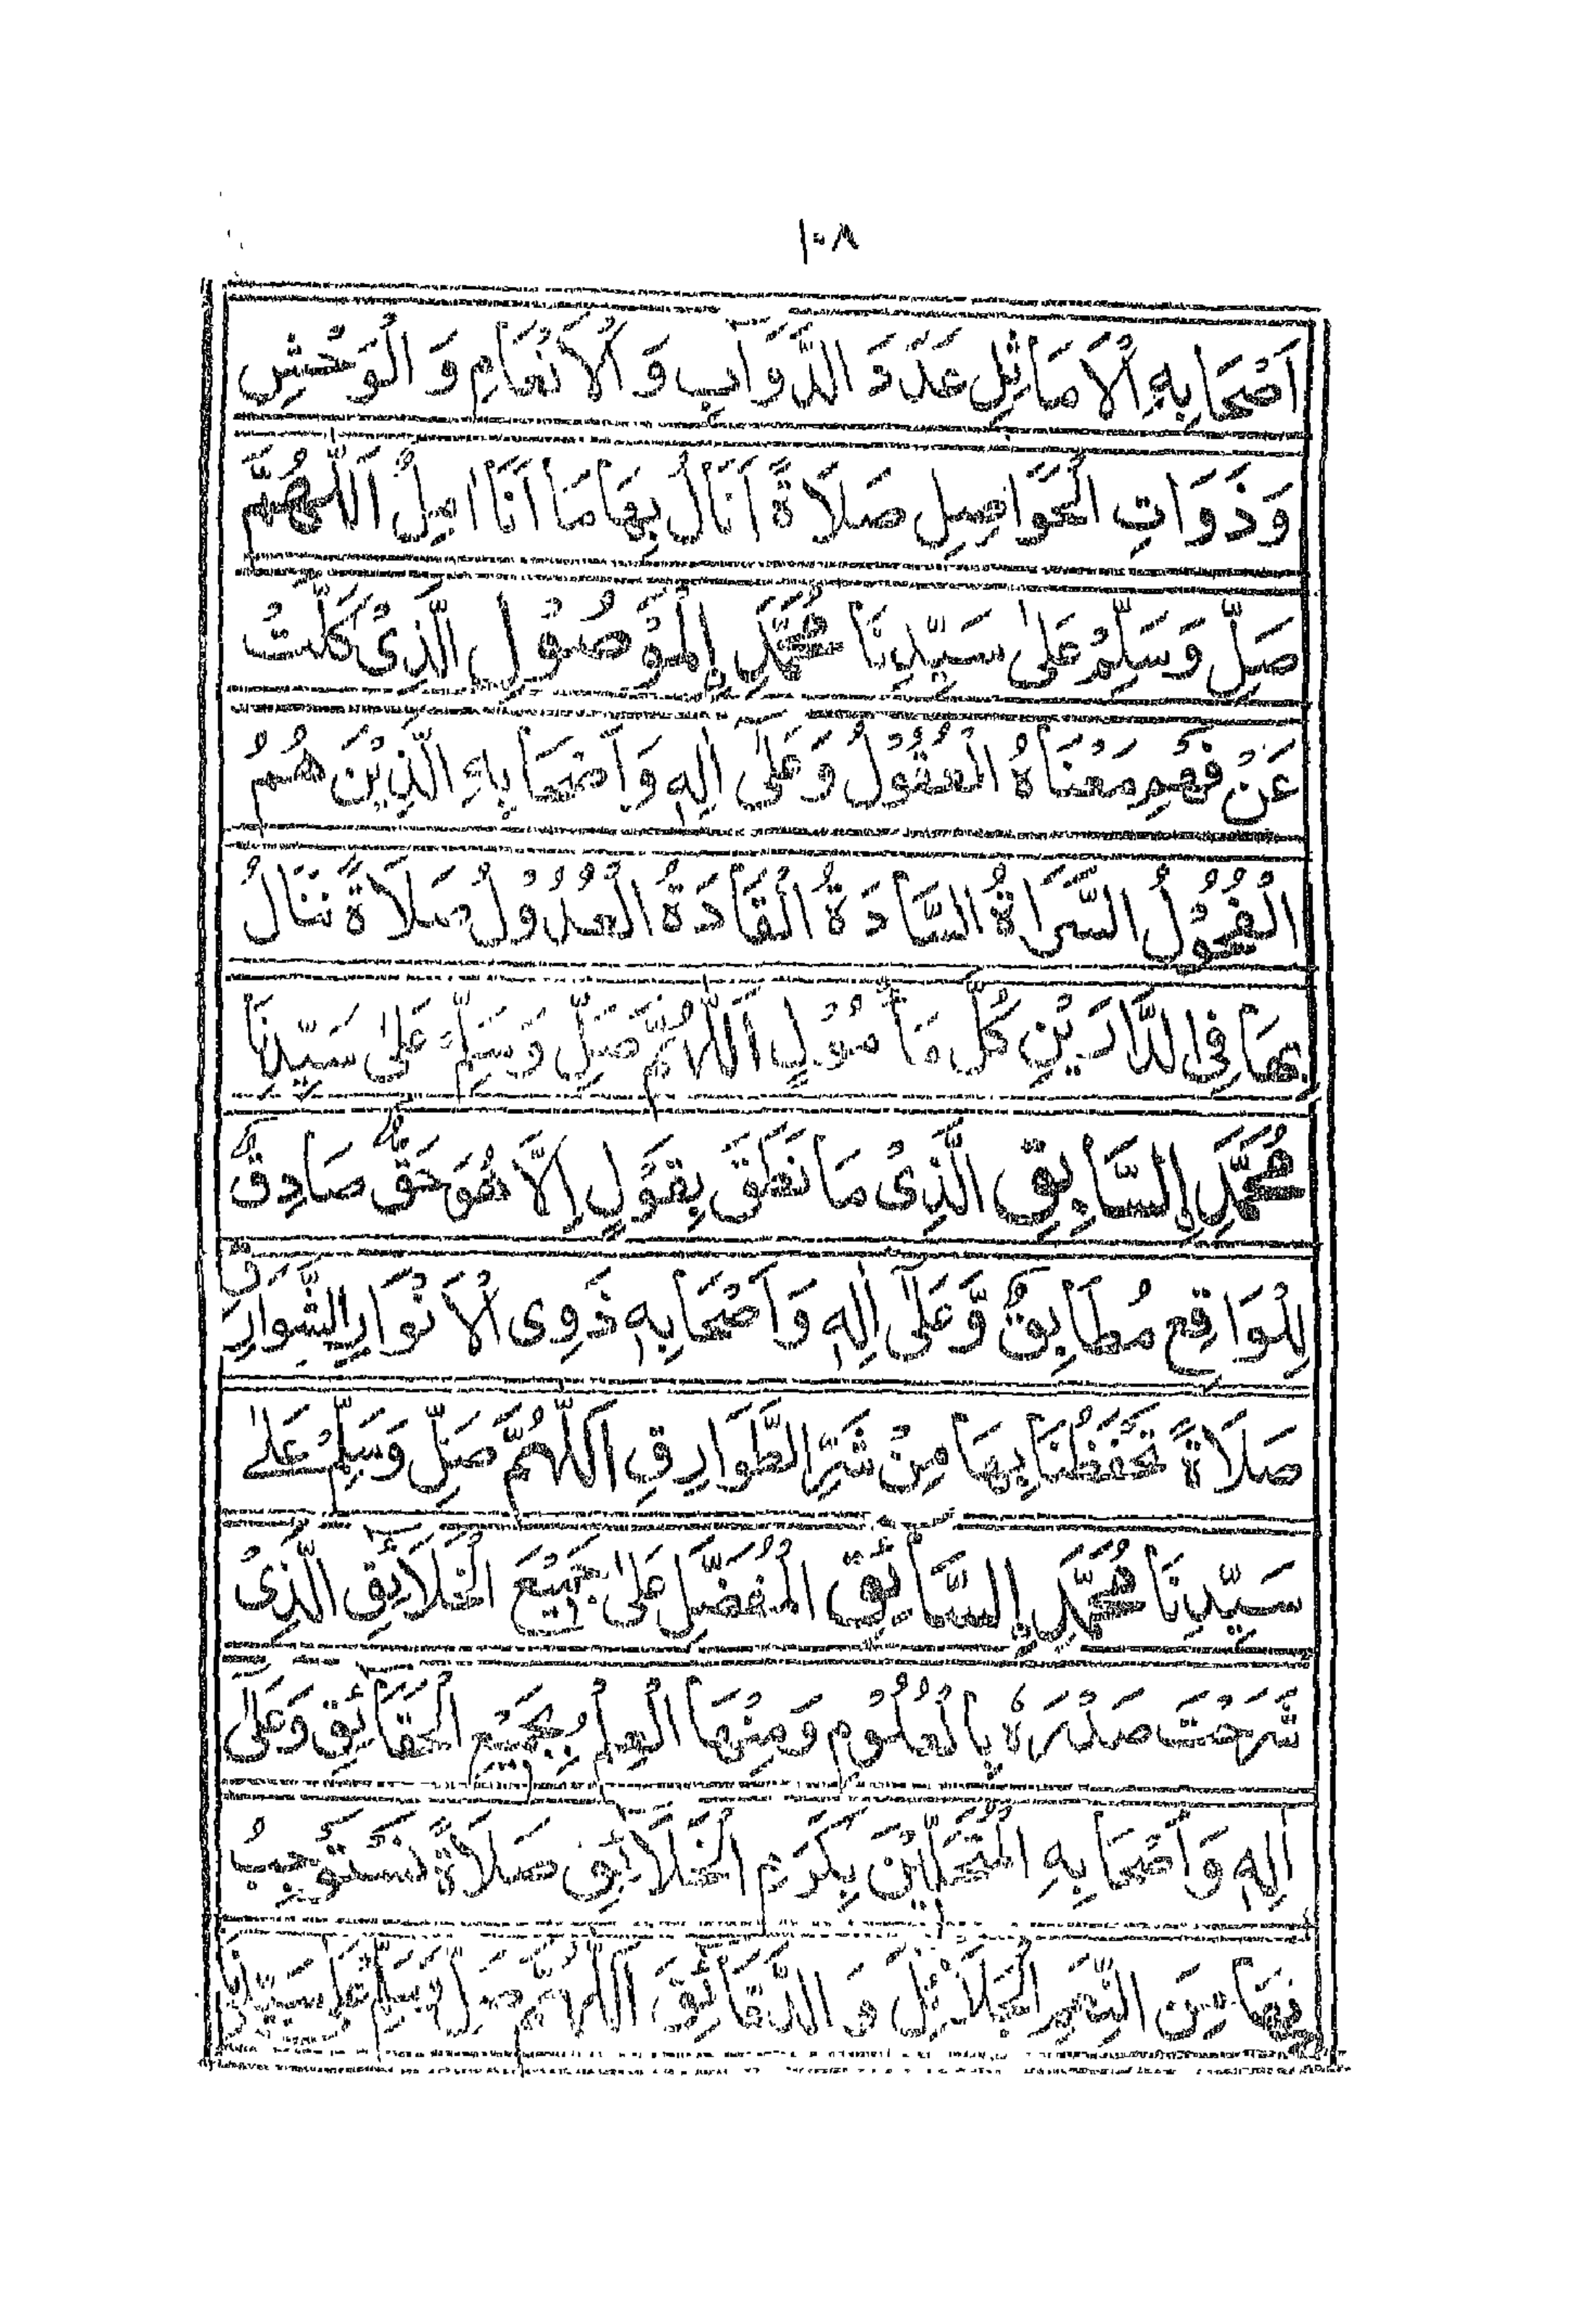 ١٠٨
اَصْحَابِهِ الْاَمَاثِلِ عَدَدَ الدَّوَابِ وَ الْاَنْعَامِ وَ الْوَحْشِ
وَذَوَاتِ الْحَوَاصِلِ صَلَاةً اَنَالُ بِهَا مَا اَنَا اٰمِلٌ اَللّٰهُمَّ
صَلِّ وَسَلِّمْ عَلٰى سَيِّدِنَا مُحَمَّدِ اِلْمَوْصُوْلِ الَّذِىْ كَلَّتْ
عَنْ فَهْمِ مَعْنَاهُ الْعُقُوْلُ وَعَلٰى اٰلِهٖ وَاَصْحَابِهِ الَّذِيْنَ هُمُ
الْفُحُوْلُ السَّرَاةُ السَّادَةُ الْقَادَةُ الْعُدُوْلُ صَلَاةً نَنَالُ
بِهَا فِى الدَّارَيْنِ كُلَّ مَأْمُوْلٍ اَللّٰهُمَّ صَلِّ وَسَلِّمْ عَلٰى سَيِّدِنَا
مُحَمَّدِ اِلسَّابِقِ الَّذِىْ مَا نَطَقَ بِقَوْلٍ اِلَّا هُوَ حَقٌّ صَادِقٌ
لِلْوَاقِعِ مُطَابِقٌ وَّعَلٰٓى اٰلِهٖ وَاَصْحَابِهٖ ذَوِى الْاَنْوَارِ الشَّوَارِقِ
صَلَاةً تَحْفَظُنَا بِهَا مِنْ شَرِّ الطَّوَارِقِ اَللّٰهُمَّ صَلِّ وَسَلِّمْ عَلٰى
سَيِّدِنَا مُحَمَّدِ اِلسَّائِقِ الْمُفَضَّلِ عَلٰى جَمِيْعِ الْخَلَائِقِ الَّذِىْ
شَرَحْتَ صَدْرَهٗ بِالْعُلُوْمِ وَمِنْهَا الْعِلْمُ بِجَمِيْعِ الْحَقَائِقِ وَعَلٰى
اٰلِهٖ وَاَصْحَابِهِ الْمُتَحَلِّيْنَ بِكَرَمِ الْخَلَائِقِ صَلَاةً نَسْتَوْجِبُ
بِهَا مِنَ النِّعَمِ الْجَلَائِلَ وَ الدَّقَائِقَ اَللّٰهُمَّ صَلِّ وَسَلِّمْ عَلٰى سَيِّدِنَا